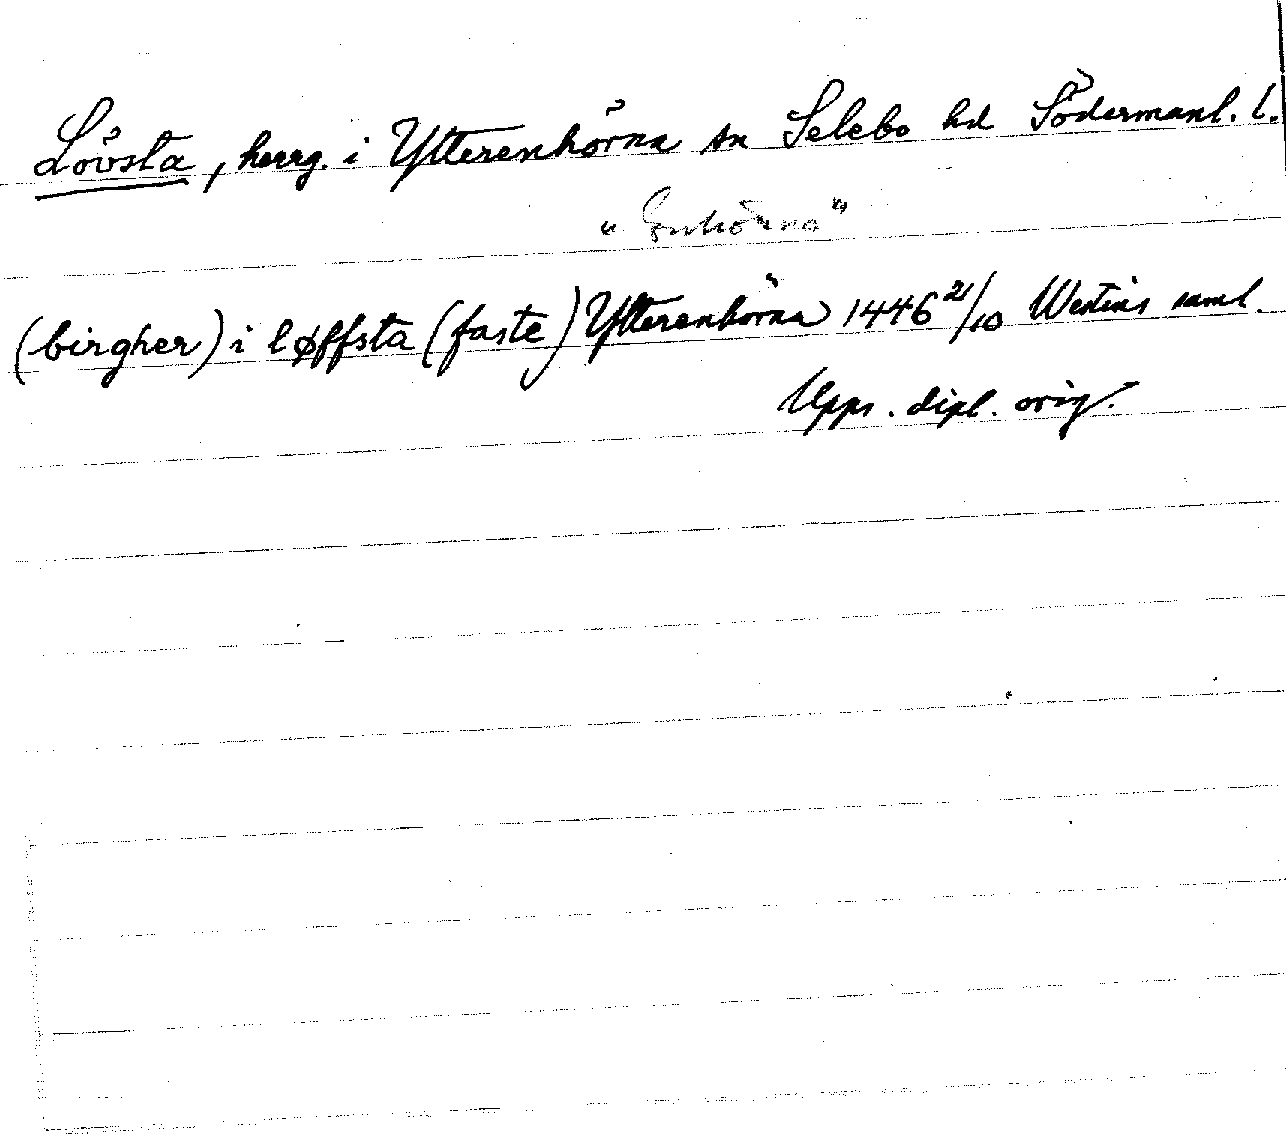 Lövsta, herrg. i Ytterenhörna sn Selebo hd Södermanl. l.
"Enhörna"
(birgher) i løffsta (faste) Ytterenhörna 1446 21/10 Westins saml.
Upps. dipl. orig.